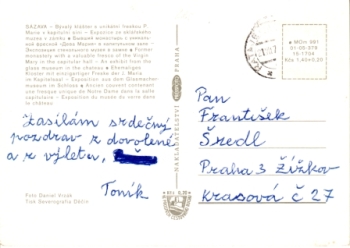 SÁZAVA – Bývalý klášter s unikátní freskou P.
Marie v kapitulní síni – Expozice ze sklářského
muzea v zámku
Former
monastery with a valuable fresco of the Virgin
Mary in the capitular hall – An exhibit from the
glass museum in the chateau – Ehemaliges
Kloster mit einzigartigen Freske der J. Maria
im Kapitelsaal – Exposition aus dem Glasmacher-
museum im Schlosse – Ancien couvent contenant
une fresque unique de Notre Dame dans la salle
capitulaire – Exposition du musée du verre dans
le château
Zasílám srdečný
pozdrav z dovolené
a z výletu,
Toník
Foto Daniel Vrzák
Tisk Severografia Děčín
NAKLADATELSTVÍ
PRAHA
Kčs 1,40+0,20
Pan
František
Šredl
Praha 3 Žižkov
Krasová č 27